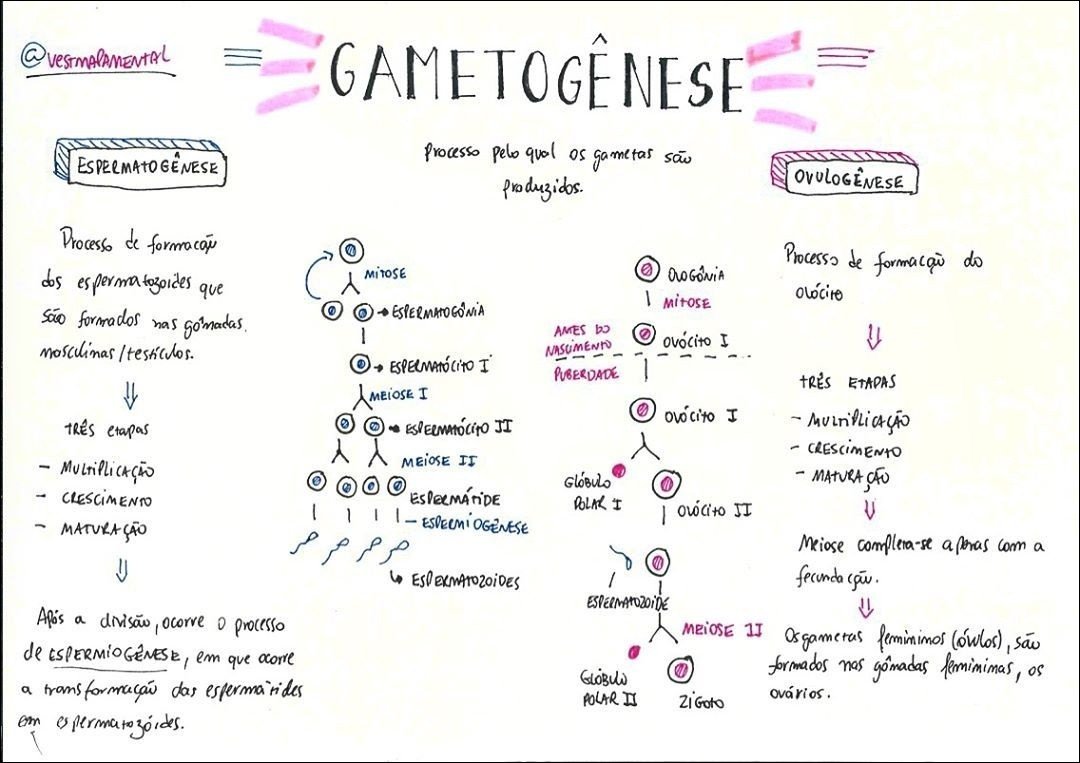 @vestmapamental
GAMETOGÊNESE
Processo pelo qual os gametas são
produzidos.
ESPERMATOGÊNESE
Processo de formação
dos espermatozoides que
são formados nas gônadas
masculinas/testículos.
TRÊS etapas
- MULTIPLICAÇÃO
- CRESCIMENTO
- MATURAÇÃO
Após a divisão, ocorre o processo
de ESPERMIOGÊNESE, em que ocorre
a transformação das espermátides
em espermatozóides.
MITOSE
ESPERMATOGÔNIA
ESPERMATÓCITO I
MEIOSE I
ESPERMATÓCITO II
MEIOSE II
ESPERMÁTIDE
- ESPERMIOGÊNESE
ESPERMATOZOIDES
OLOGÔNIA
MITOSE
ANTES DO
NASCIMENTO
OVÓCITO I
PUBERDADE
OVÓCITO I
GLÓBULO
POLAR I
OVÓCITO II
ESPERMATOZOIDE
MEIOSE II
GLÓBULO
POLAR II
ZIGOTO
OVULOGÊNESE
Processo de formacção do
ovócito
TRÊS ETAPAS
- MULTIPLICAÇÃO
- CRESCIMENTO
- MATURAÇÃO
Meiose completa-se apenas com a
fecundação.
Os gametas femininos (óvulos), são
formados nas gônadas femininas, os
ovários.